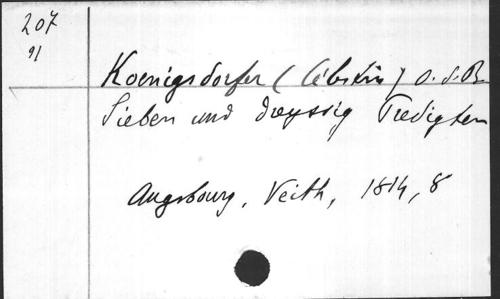 207
91
Koenigsdorfer (Cölestin) O.S.B.
Sieben und dreyssig Predigten
Augsbourg, Veith, 1814, 8